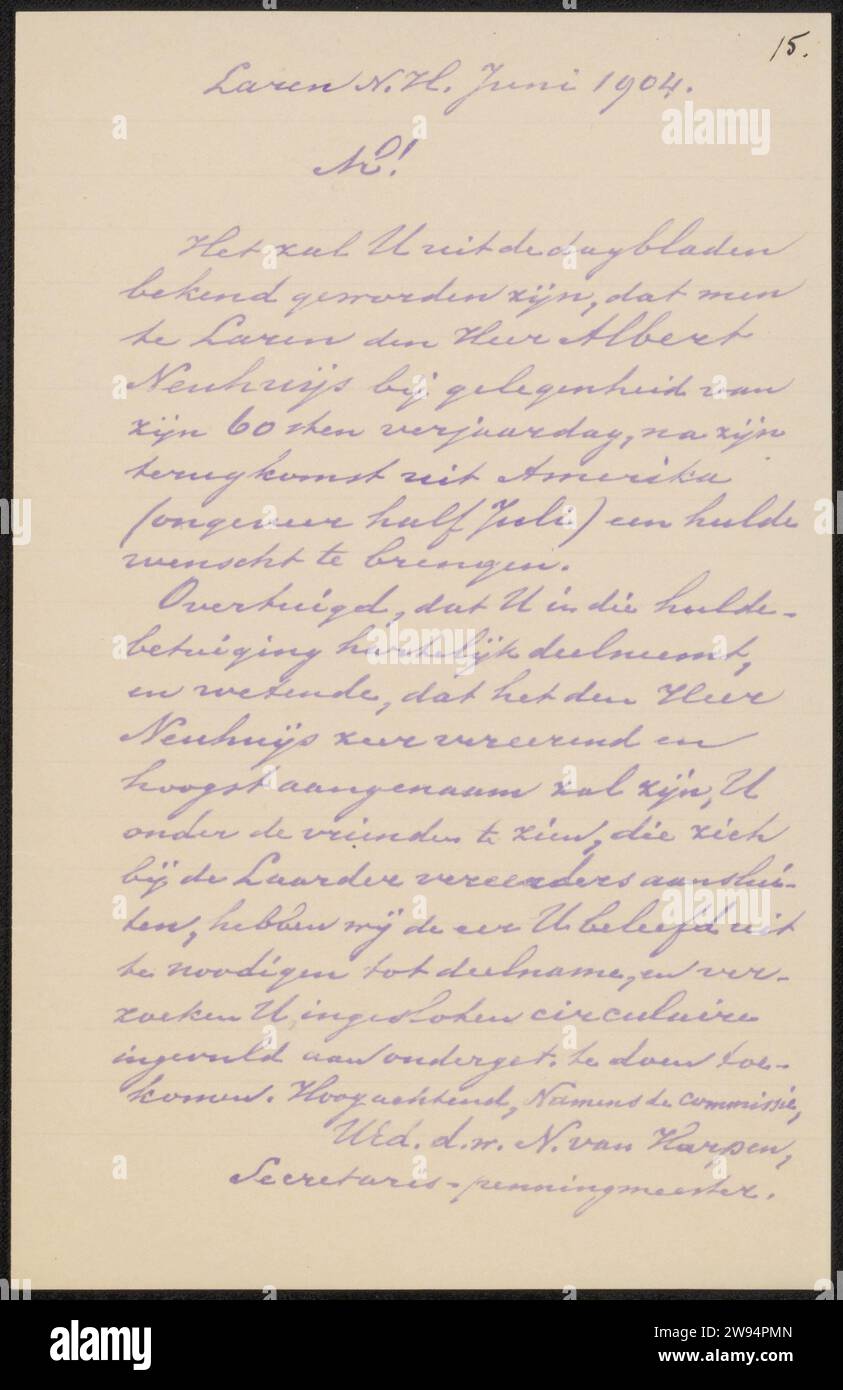 15.
Laren N.H. Juni 1904.
M!
Het zal U uit de dagbladen
bekend geworden zijn, dat men
te Laren den Heer Albert
Neuhuijs bij gelegenheid van
zijn 60sten verjaardag, na zijn
terugkomst uit Amerika
(ongeveer half Juli) een hulde
wenscht te brengen.
Overtuigd, dat U in die hulde-
betuiging hartelijk deelneemt,
en wetende, dat het den Heer
Neuhuijs zeer vereerend en
hoogst aangenaam zal zijn, U
onder de vrienden te zien, die zich
bij de Laarder vereerders aanslui-
ten, hebben wij de eer U beleefd uit
te noodigen tot deelname, en ver-
zoeken U, ingesloten circulaire
ingevuld aan onderget. te doen toe-
komen. Hoogachtend, Namens de commissie,
UEd. d.w. N. van Harpen,
Secretaris-penningmeester.
alamy
Image ID: 2W94PMN
www.alamy.com